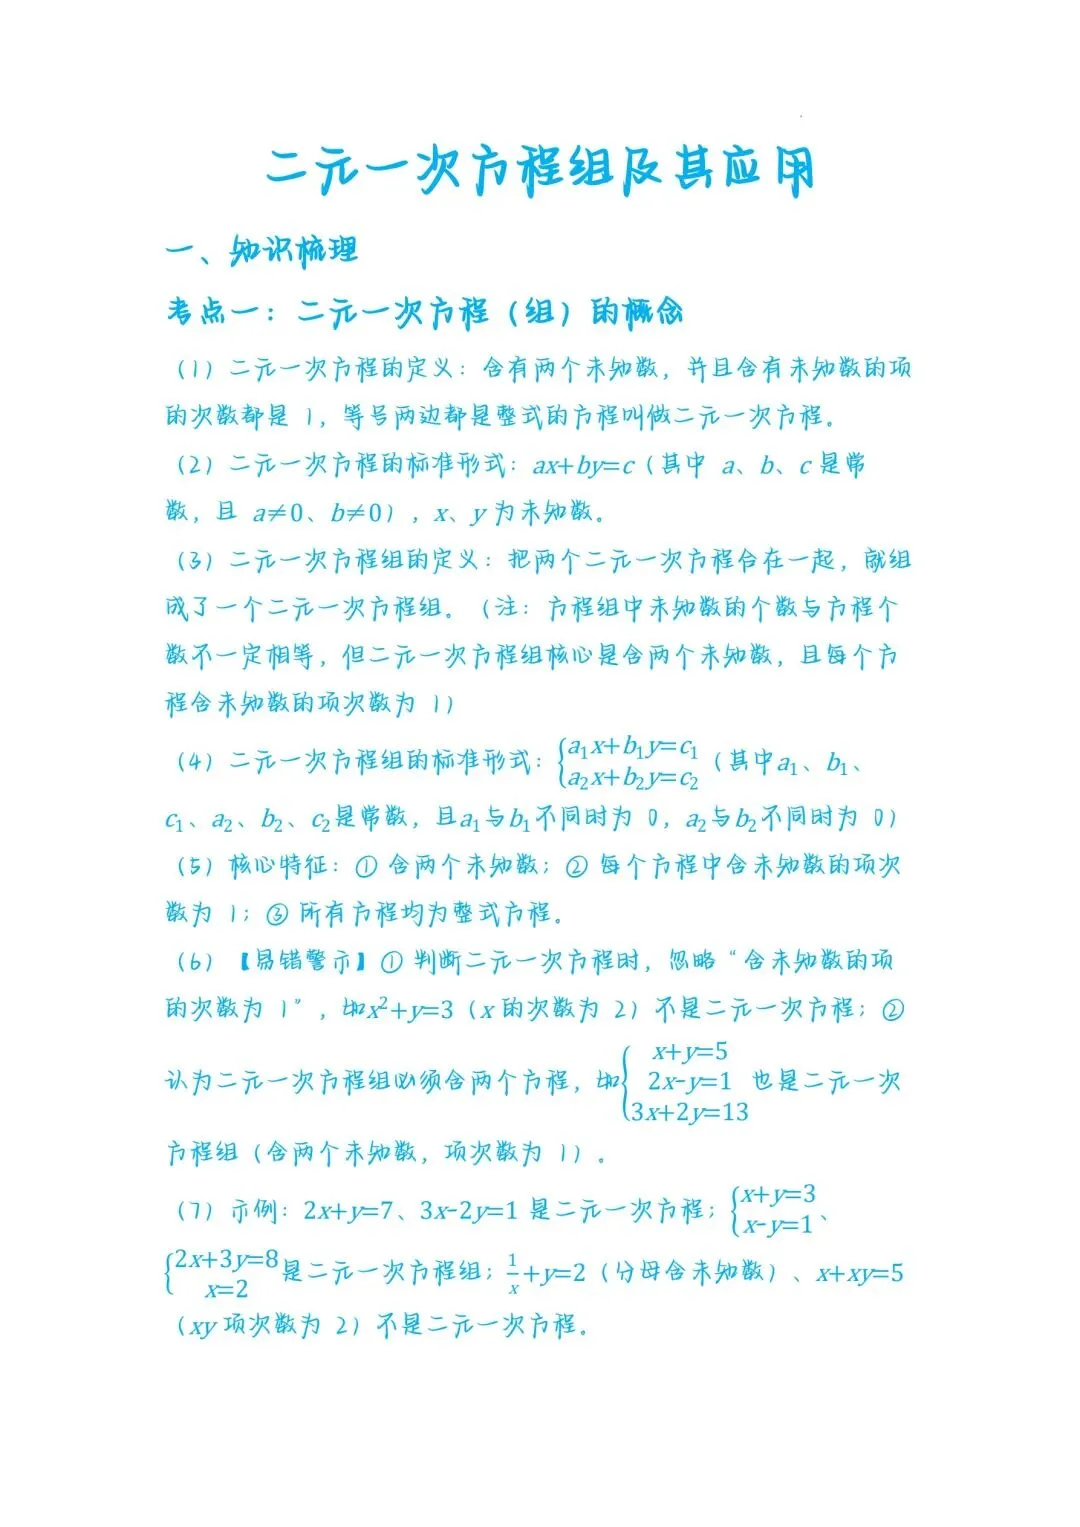 二元一次方程组及其应用
一、知识梳理
考点一：二元一次方程（组）的概念
（1）二元一次方程的定义：含有两个未知数，并且含有未知数的项
的次数都是 1，等号两边都是整式的方程叫做二元一次方程。
（2）二元一次方程的标准形式：ax+by=c（其中 a、b、c 是常
数，且 a≠0、b≠0），x、y 为未知数。
（3）二元一次方程组的定义：把两个二元一次方程合在一起，就组
成了一个二元一次方程组。（注：方程组中未知数的个数与方程个
数不一定相等，但二元一次方程组核心是含两个未知数，且每个方
程含未知数的项次数为 1）
（4）二元一次方程组的标准形式：{a₁x+b₁y=c₁ a₂x+b₂y=c₂（其中a₁、b₁、
c₁、a₂、b₂、c₂是常数，且a₁与b₁不同时为 0，a₂与b₂不同时为 0）
（5）核心特征：① 含两个未知数；② 每个方程中含未知数的项次
数为 1；③ 所有方程均为整式方程。
（6）【易错警示】① 判断二元一次方程时，忽略“含未知数的项
的次数为 1”，如x²+y=3（x 的次数为 2）不是二元一次方程；②
认为二元一次方程组必须含两个方程，如{x+y=5 2x-y=1 3x+2y=13 也是二元一次
方程组（含两个未知数，项次数为 1）。
（7）示例：2x+y=7、3x-2y=1 是二元一次方程；{x+y=3 x-y=1、
{2x+3y=8 x=2是二元一次方程组；1/x+y=2（分母含未知数）、x+xy=5
（xy 项次数为 2）不是二元一次方程。